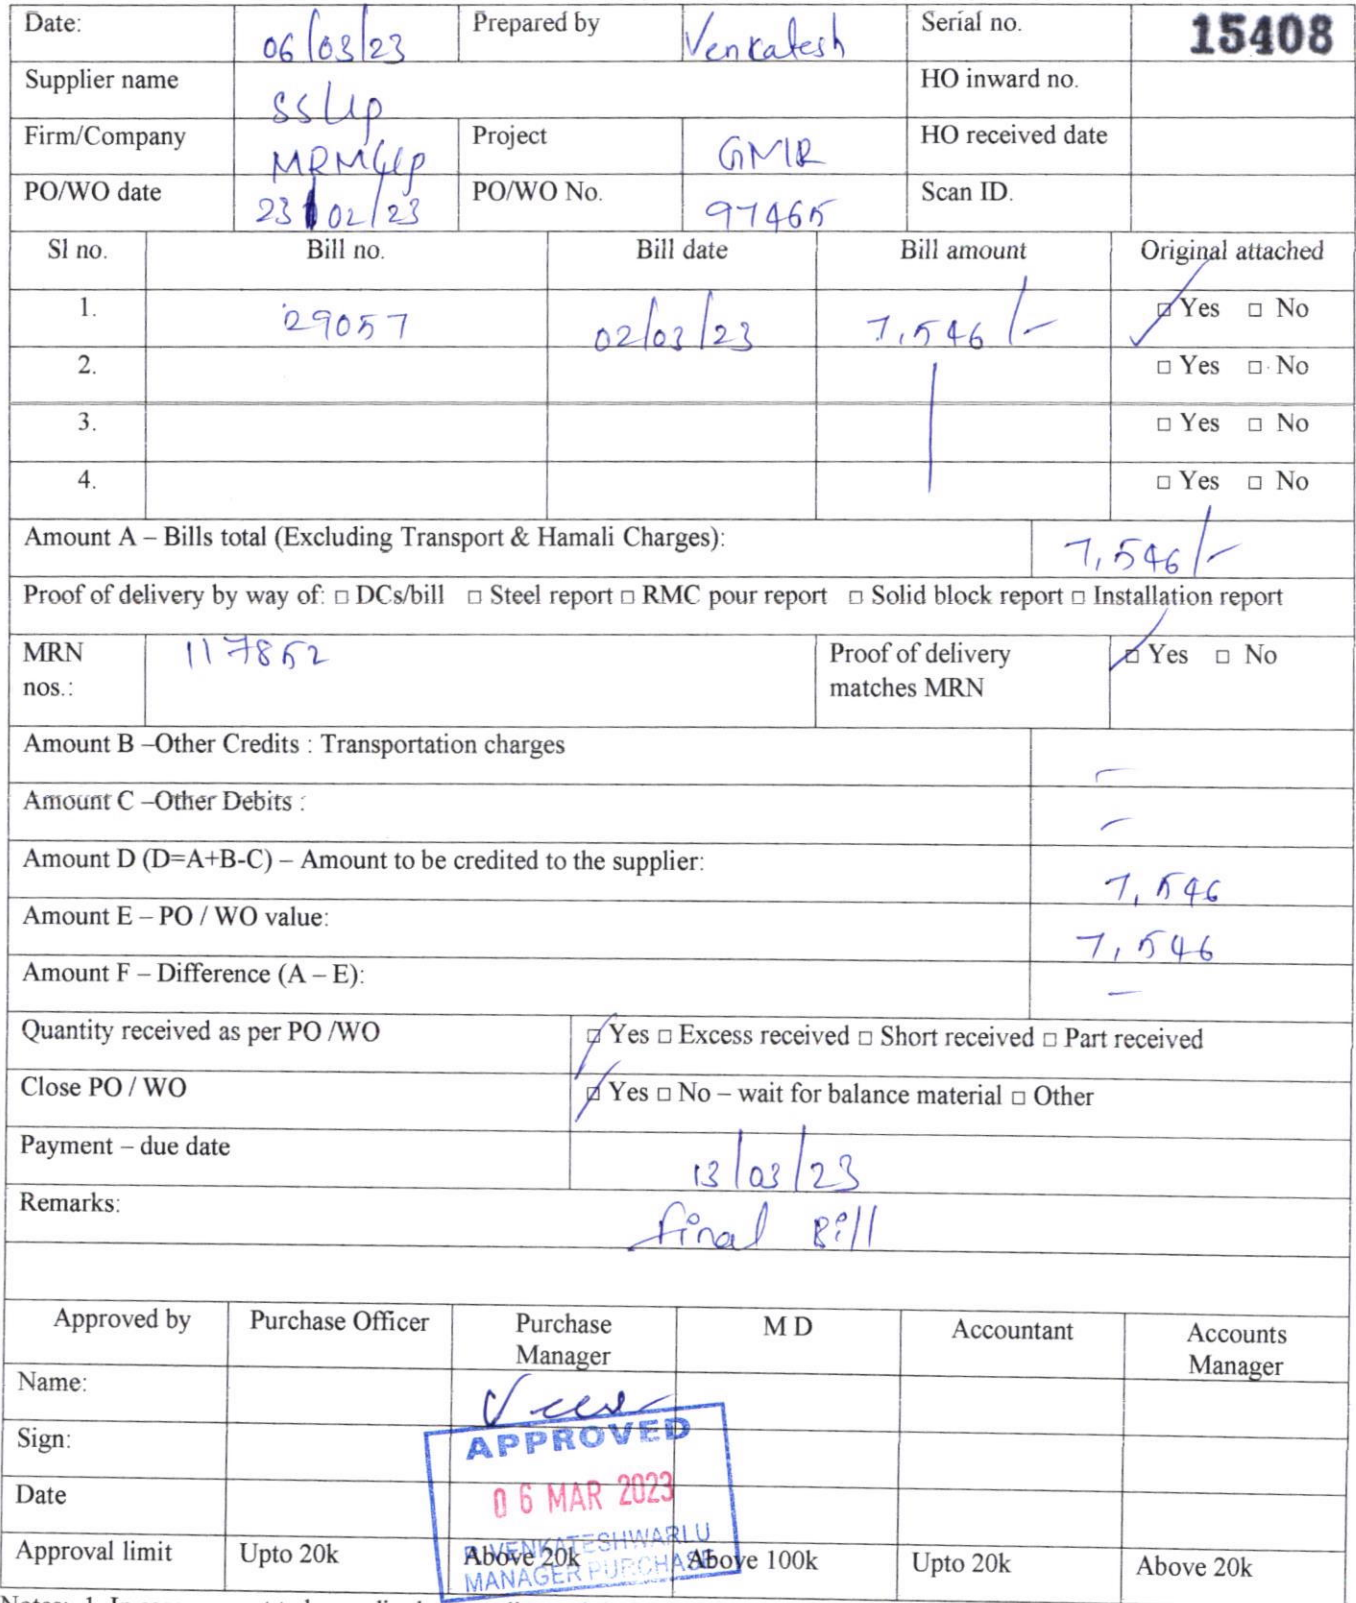 Date: 06/03/23 Prepared by Venkatesh Serial no. 15408
Supplier name SSLLP HO inward no.
Firm/Company MRMLLP Project GMR HO received date
PO/WO date 23/02/23 PO/WO No. 97465 Scan ID.
Sl no. Bill no. Bill date Bill amount Original attached
1. 29057 02/03/23 7,546/- □ Yes □ No
2. □ Yes □ No
3. □ Yes □ No
4. □ Yes □ No
Amount A – Bills total (Excluding Transport & Hamali Charges): 7,546/-
Proof of delivery by way of: □ DCs/bill □ Steel report □ RMC pour report □ Solid block report □ Installation report
MRN nos.: 117852 Proof of delivery matches MRN □ Yes □ No
Amount B –Other Credits : Transportation charges -
Amount C –Other Debits : -
Amount D (D=A+B-C) – Amount to be credited to the supplier: 7,546
Amount E – PO / WO value: 7,546
Amount F – Difference (A – E): -
Quantity received as per PO /WO □ Yes □ Excess received □ Short received □ Part received
Close PO / WO □ Yes □ No – wait for balance material □ Other
Payment – due date 13/03/23
Remarks: final Bill
Approved by Purchase Officer Purchase Manager M D Accountant Accounts Manager
Name:
Sign:
APPROVED
Date
06 MAR 2023
VENKATESHWARLU
Approval limit Upto 20k Above 20k Above 100k Upto 20k Above 20k
MANAGER PURCHASE